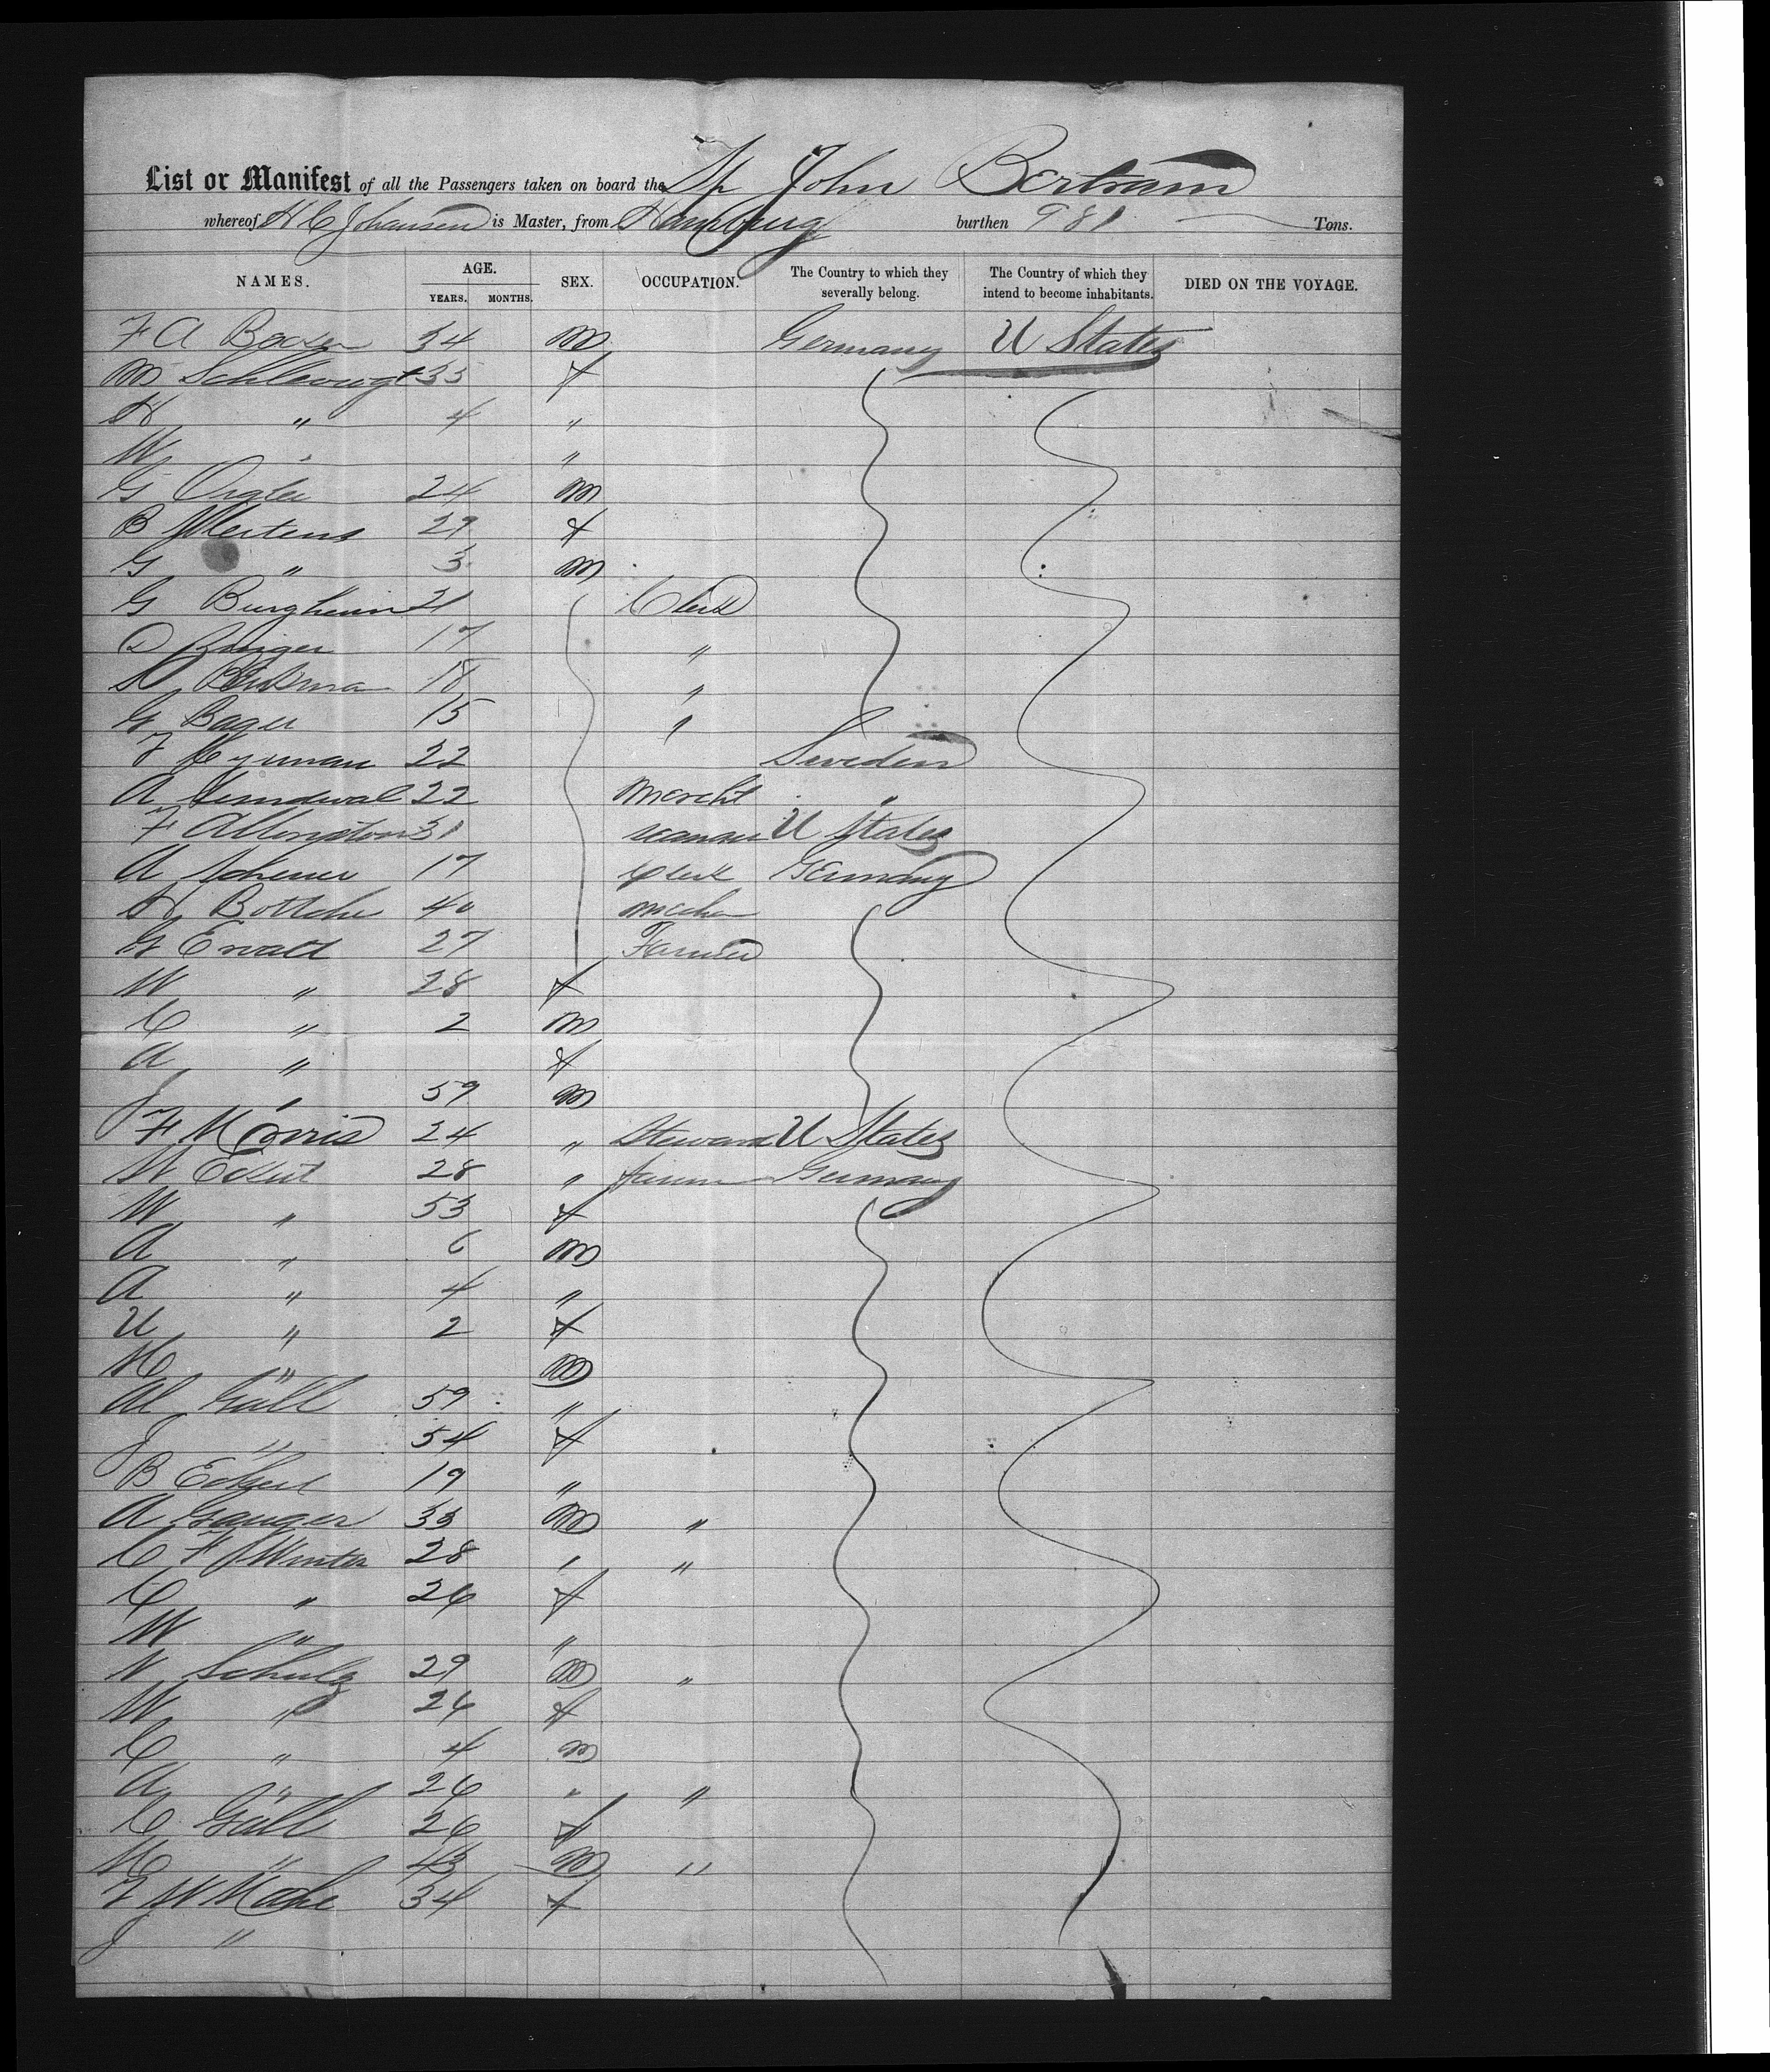 List or Manifest of all the Passengers taken on board the Sp John Bertram
whereof H C Johansen is Master, from Hamburg burthen 981 Tons.
NAMES. AGE. YEARS. MONTHS. SEX. OCCUPATION. The Country to which they severally belong. The Country of which they intend to become inhabitants. DIED ON THE VOYAGE.
F A 34 m Germany U States
M 35 f
H " 4 "
W " "
G 24 m
B Mertens 29 f
G " 3 m
G Burgheim 21 Clerk
17 "
18 "
G Bager 15 "
F Hyman 22 Sweden
A 22 Mercht "
F Allington 31 seaman U States
A Scheuer 17 Clerk Germany
H Bottcher 40 mechn
G Ewald 27 Farmer
W " 28 f
C " 2 m
A " f
J " 59 m
F Morris 24 " Steward U States
28 " farmer Germany
W " 53 f
A " 6 m
A " 4 "
U " 2 f
H " m
Gall 59 "
J " 54 f
B 19 "
A Ganger 33 m "
C F Winter 28 " "
C " 26 f
W " "
N Schulz 29 m "
W " 26 f
C " 4 m
A " 26 " "
C Gall 26 f
H " 43 m "
34 f
J "